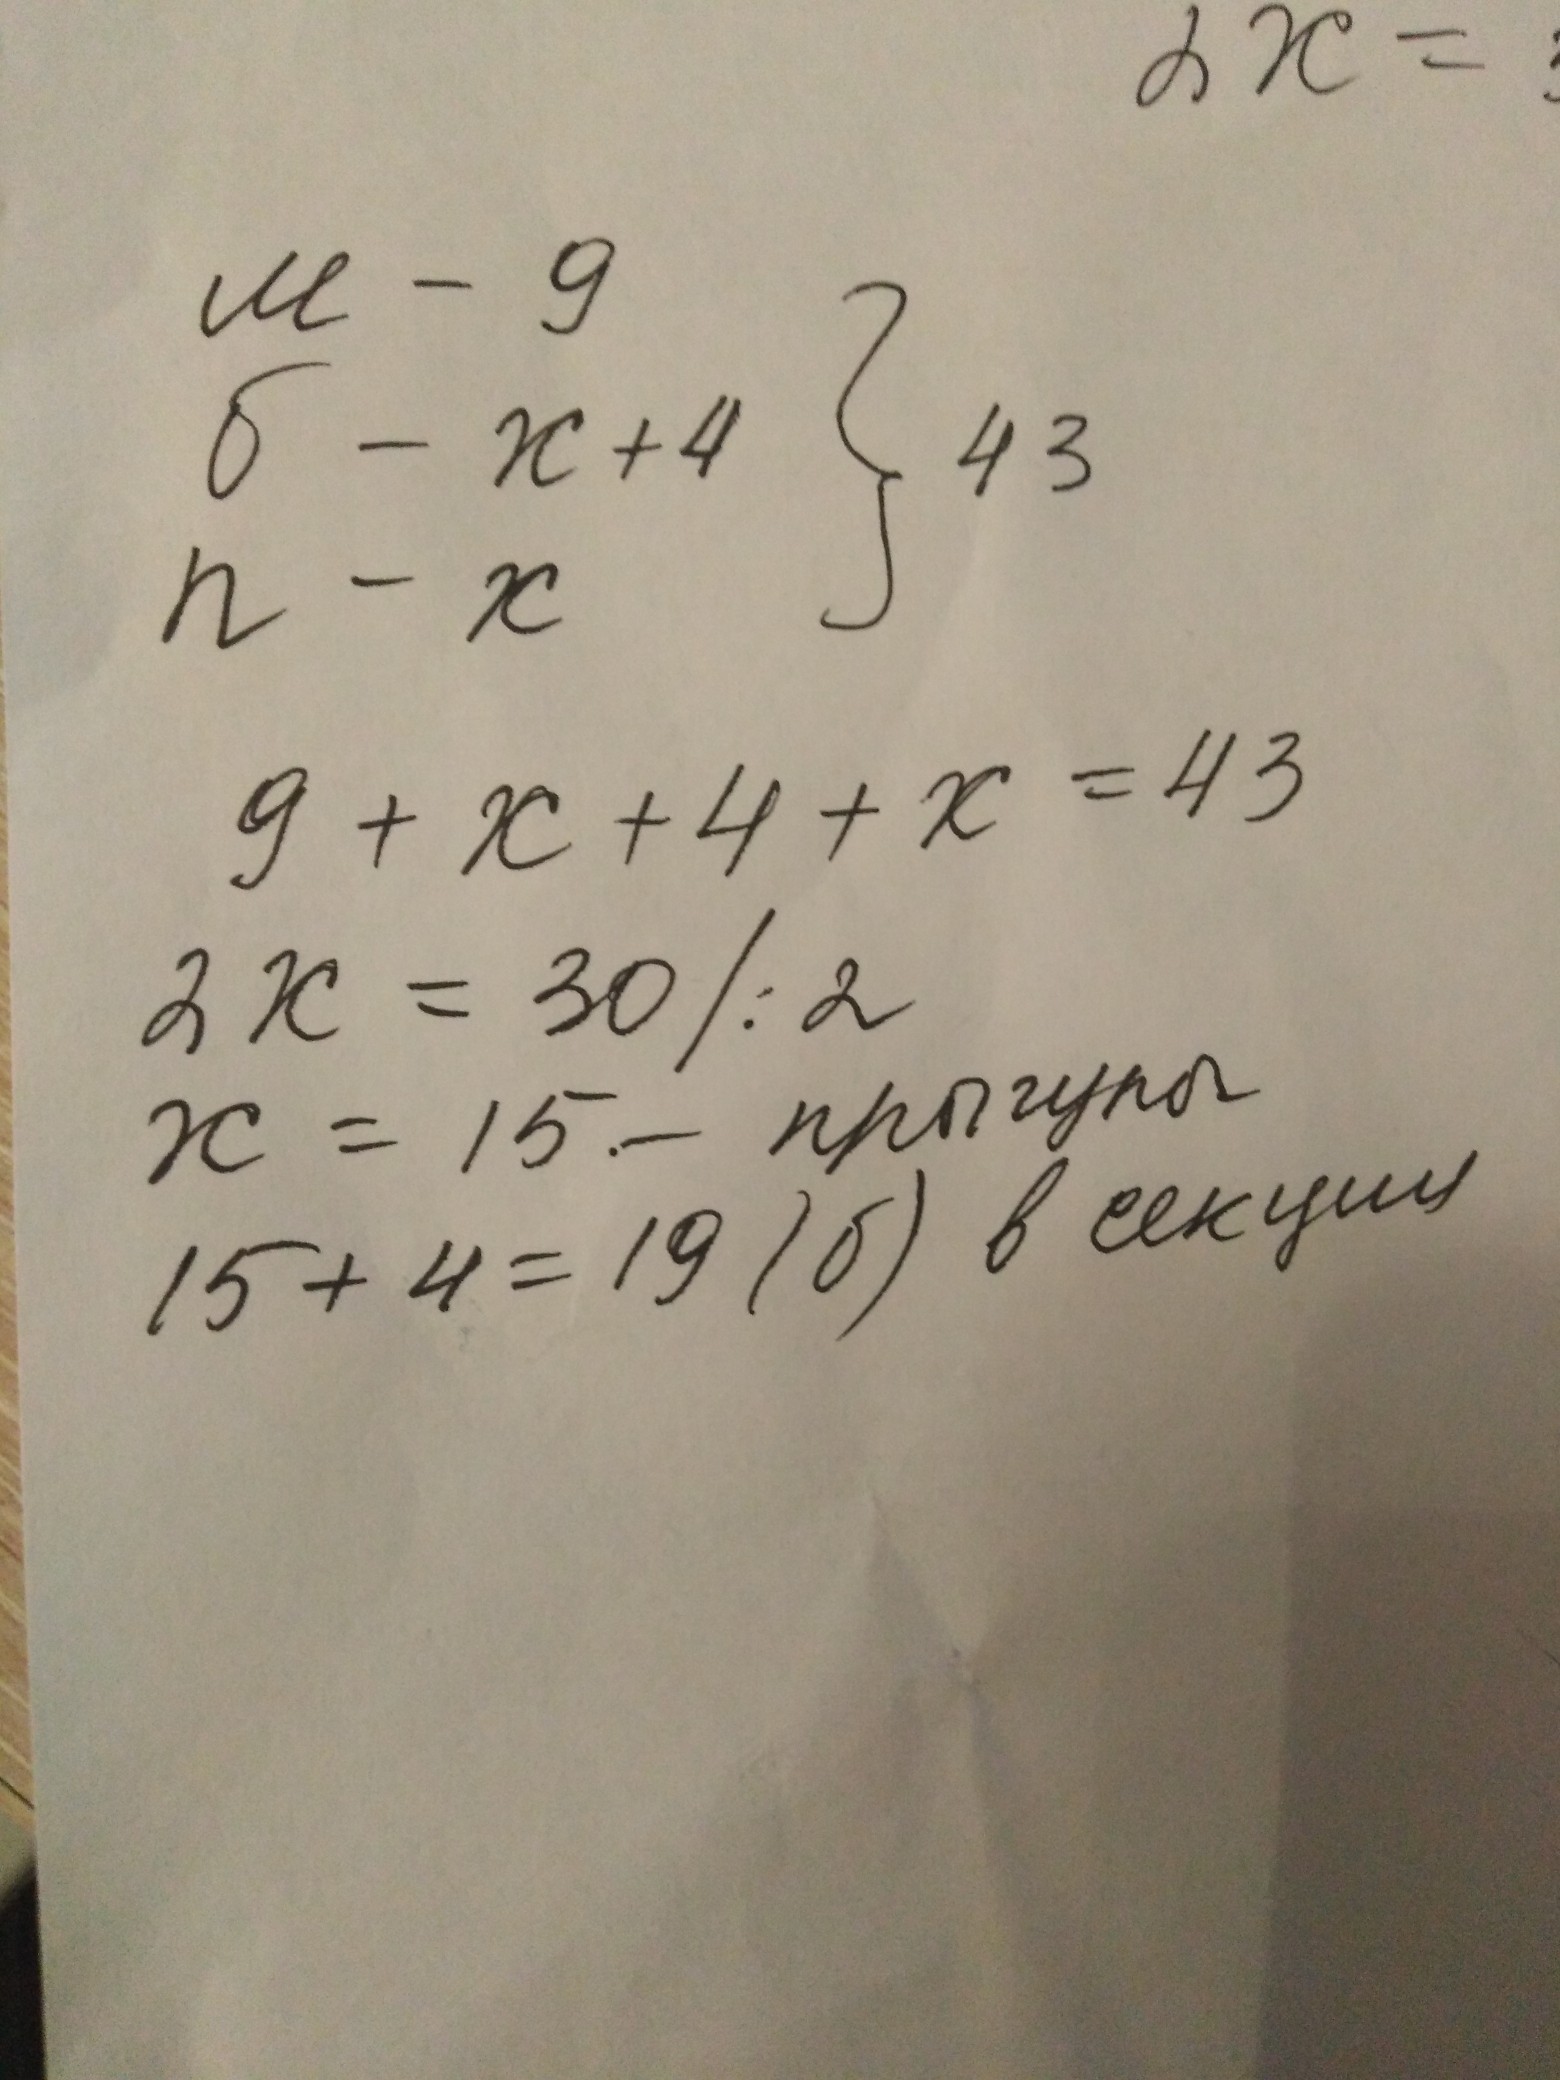 2x =
м - 9
б - x+4 } 43
п - x
9 + x + 4 + x = 43
2x = 30 /: 2
x = 15 .- прыгуны
15 + 4 = 19 (б) в секции